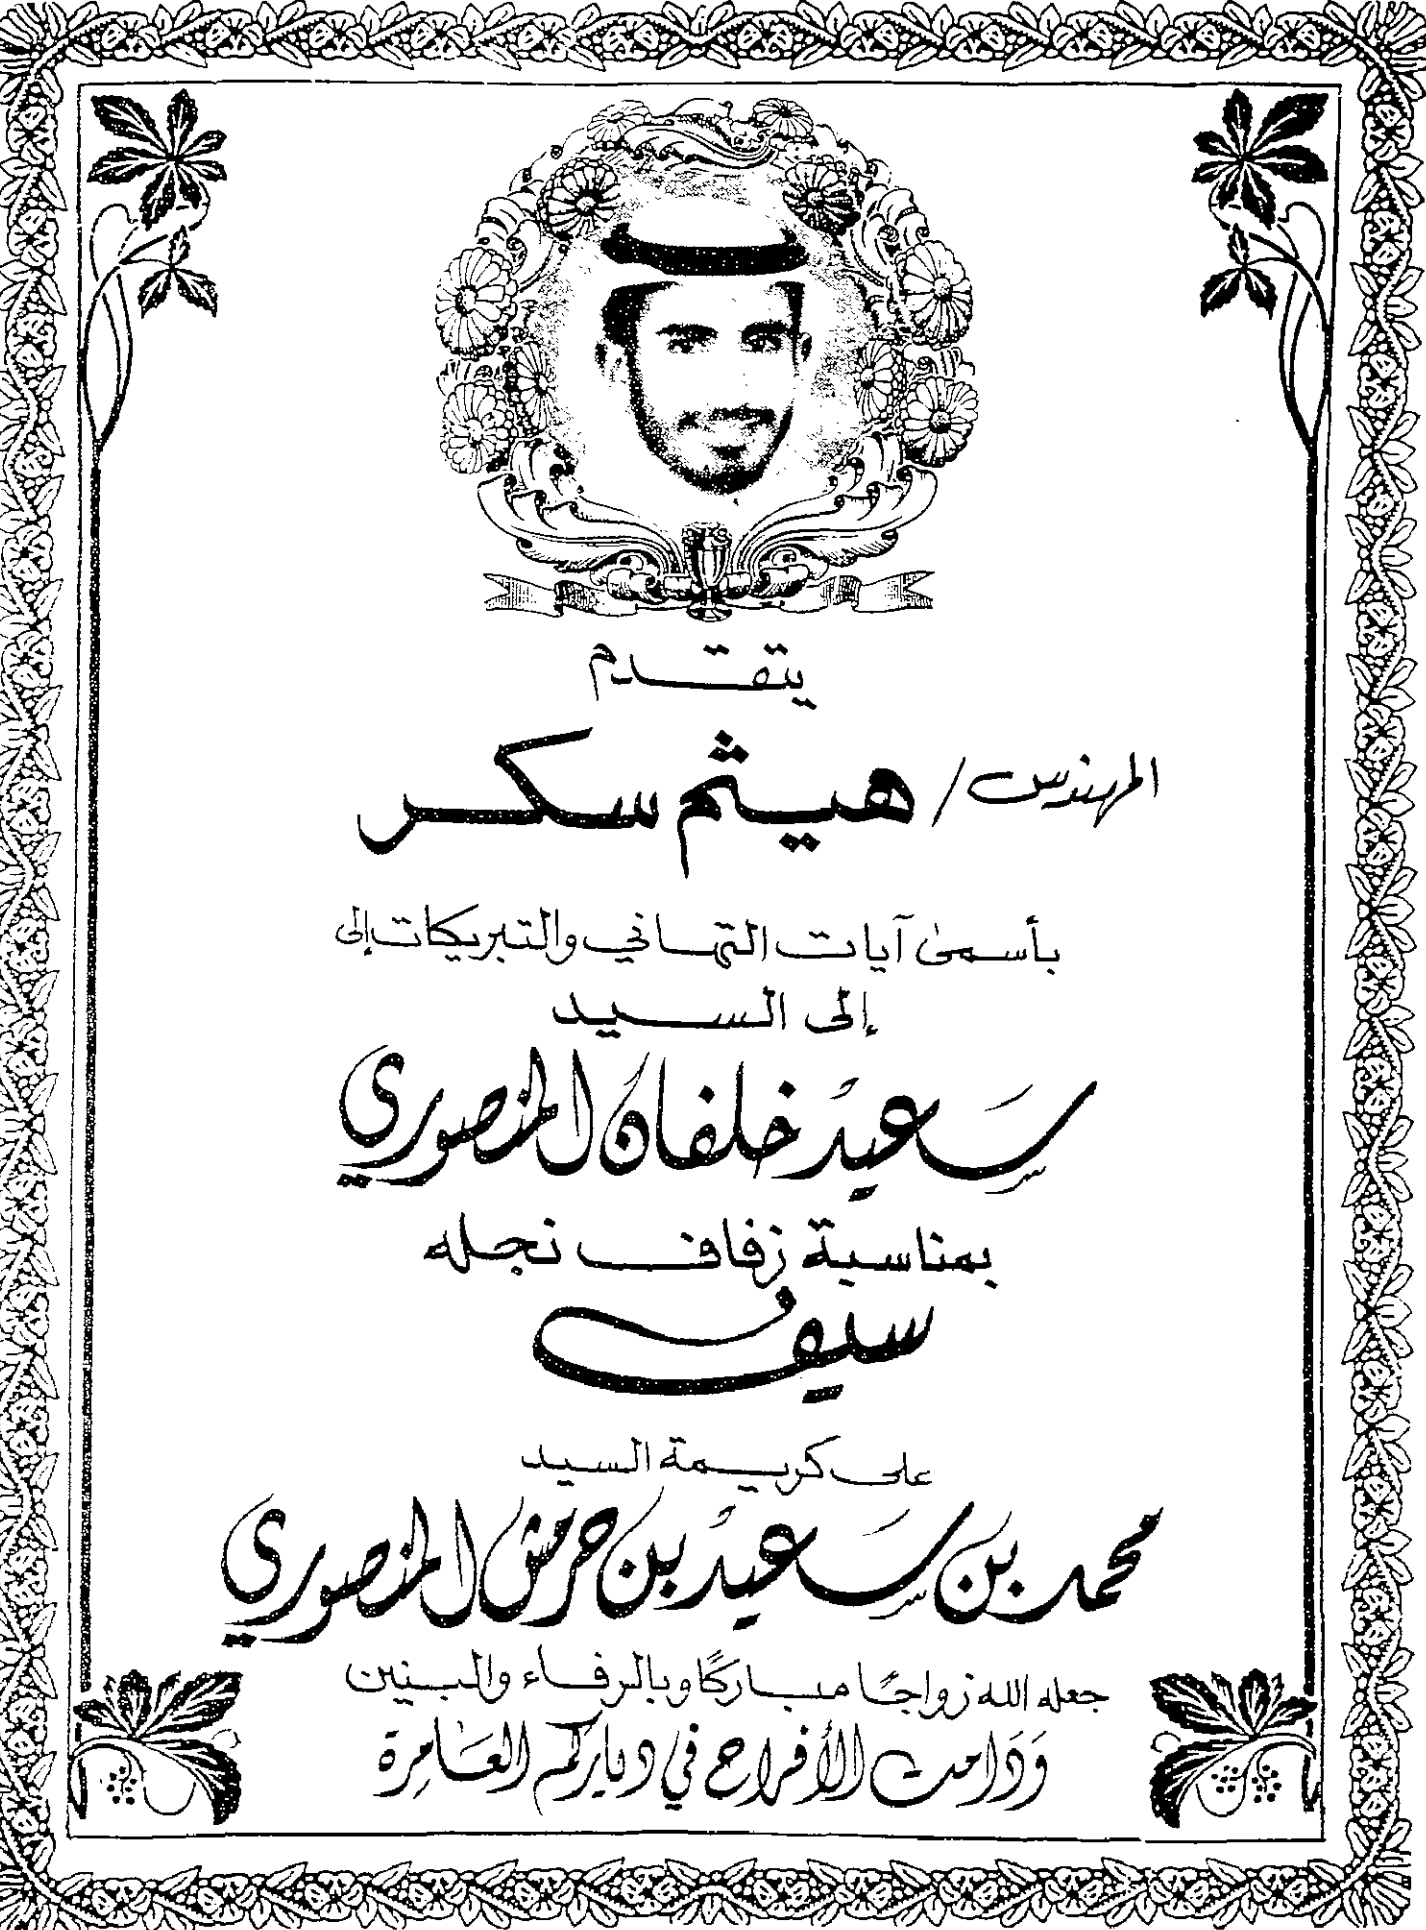 يتقدم
المهندس / هيثم سكر
بأسمى آيات التهاني والتبريكات إلى
إلى السيد
سعيد خلفان المنصوري
بمناسبة زفاف نجله
سيف
على كريمة السيد
محمد بن سعيد بن حرمش المنصوري
جعله الله زواجًا مباركًا وبالرفاء والبنين
وَدَامت الأفراح في دياركم العَامِرة